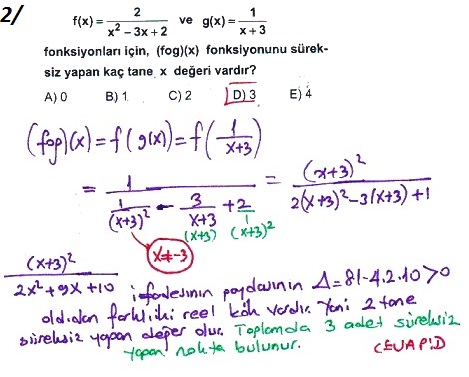 2/
f(x) = 2 / (x² − 3x + 2) ve g(x) = 1 / (x + 3)
fonksiyonları için, (fog)(x) fonksiyonunu sürek-
siz yapan kaç tane x değeri vardır?
A) 0 B) 1 C) 2 D) 3 E) 4
(fog)(x) = f(g(x)) = f(1 / (x+3))
= 1 / (1/(x+3)² − 3/(x+3) + 2/1) = (x+3)² / (2(x+3)² − 3(x+3) + 1)
(x+3) (x+3)²
x ≠ -3
(x+3)² / (2x² + 9x + 10) ifadesinin paydasının Δ = 81 - 4.2.10 > 0
olduğundan farklı iki reel kök vardır. Yani 2 tane
süreksiz yapan değer olur. Toplamda 3 adet süreksiz
yapan nokta bulunur.
CEVAP:D